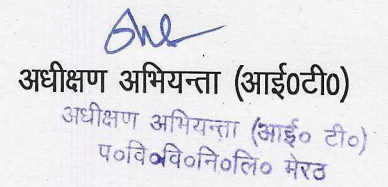 अधीक्षण अभियन्ता (आई०टी०)
अधीक्षण अभियन्ता (आई० टी०)
प०वि०वि०नि०लि० मेरठ